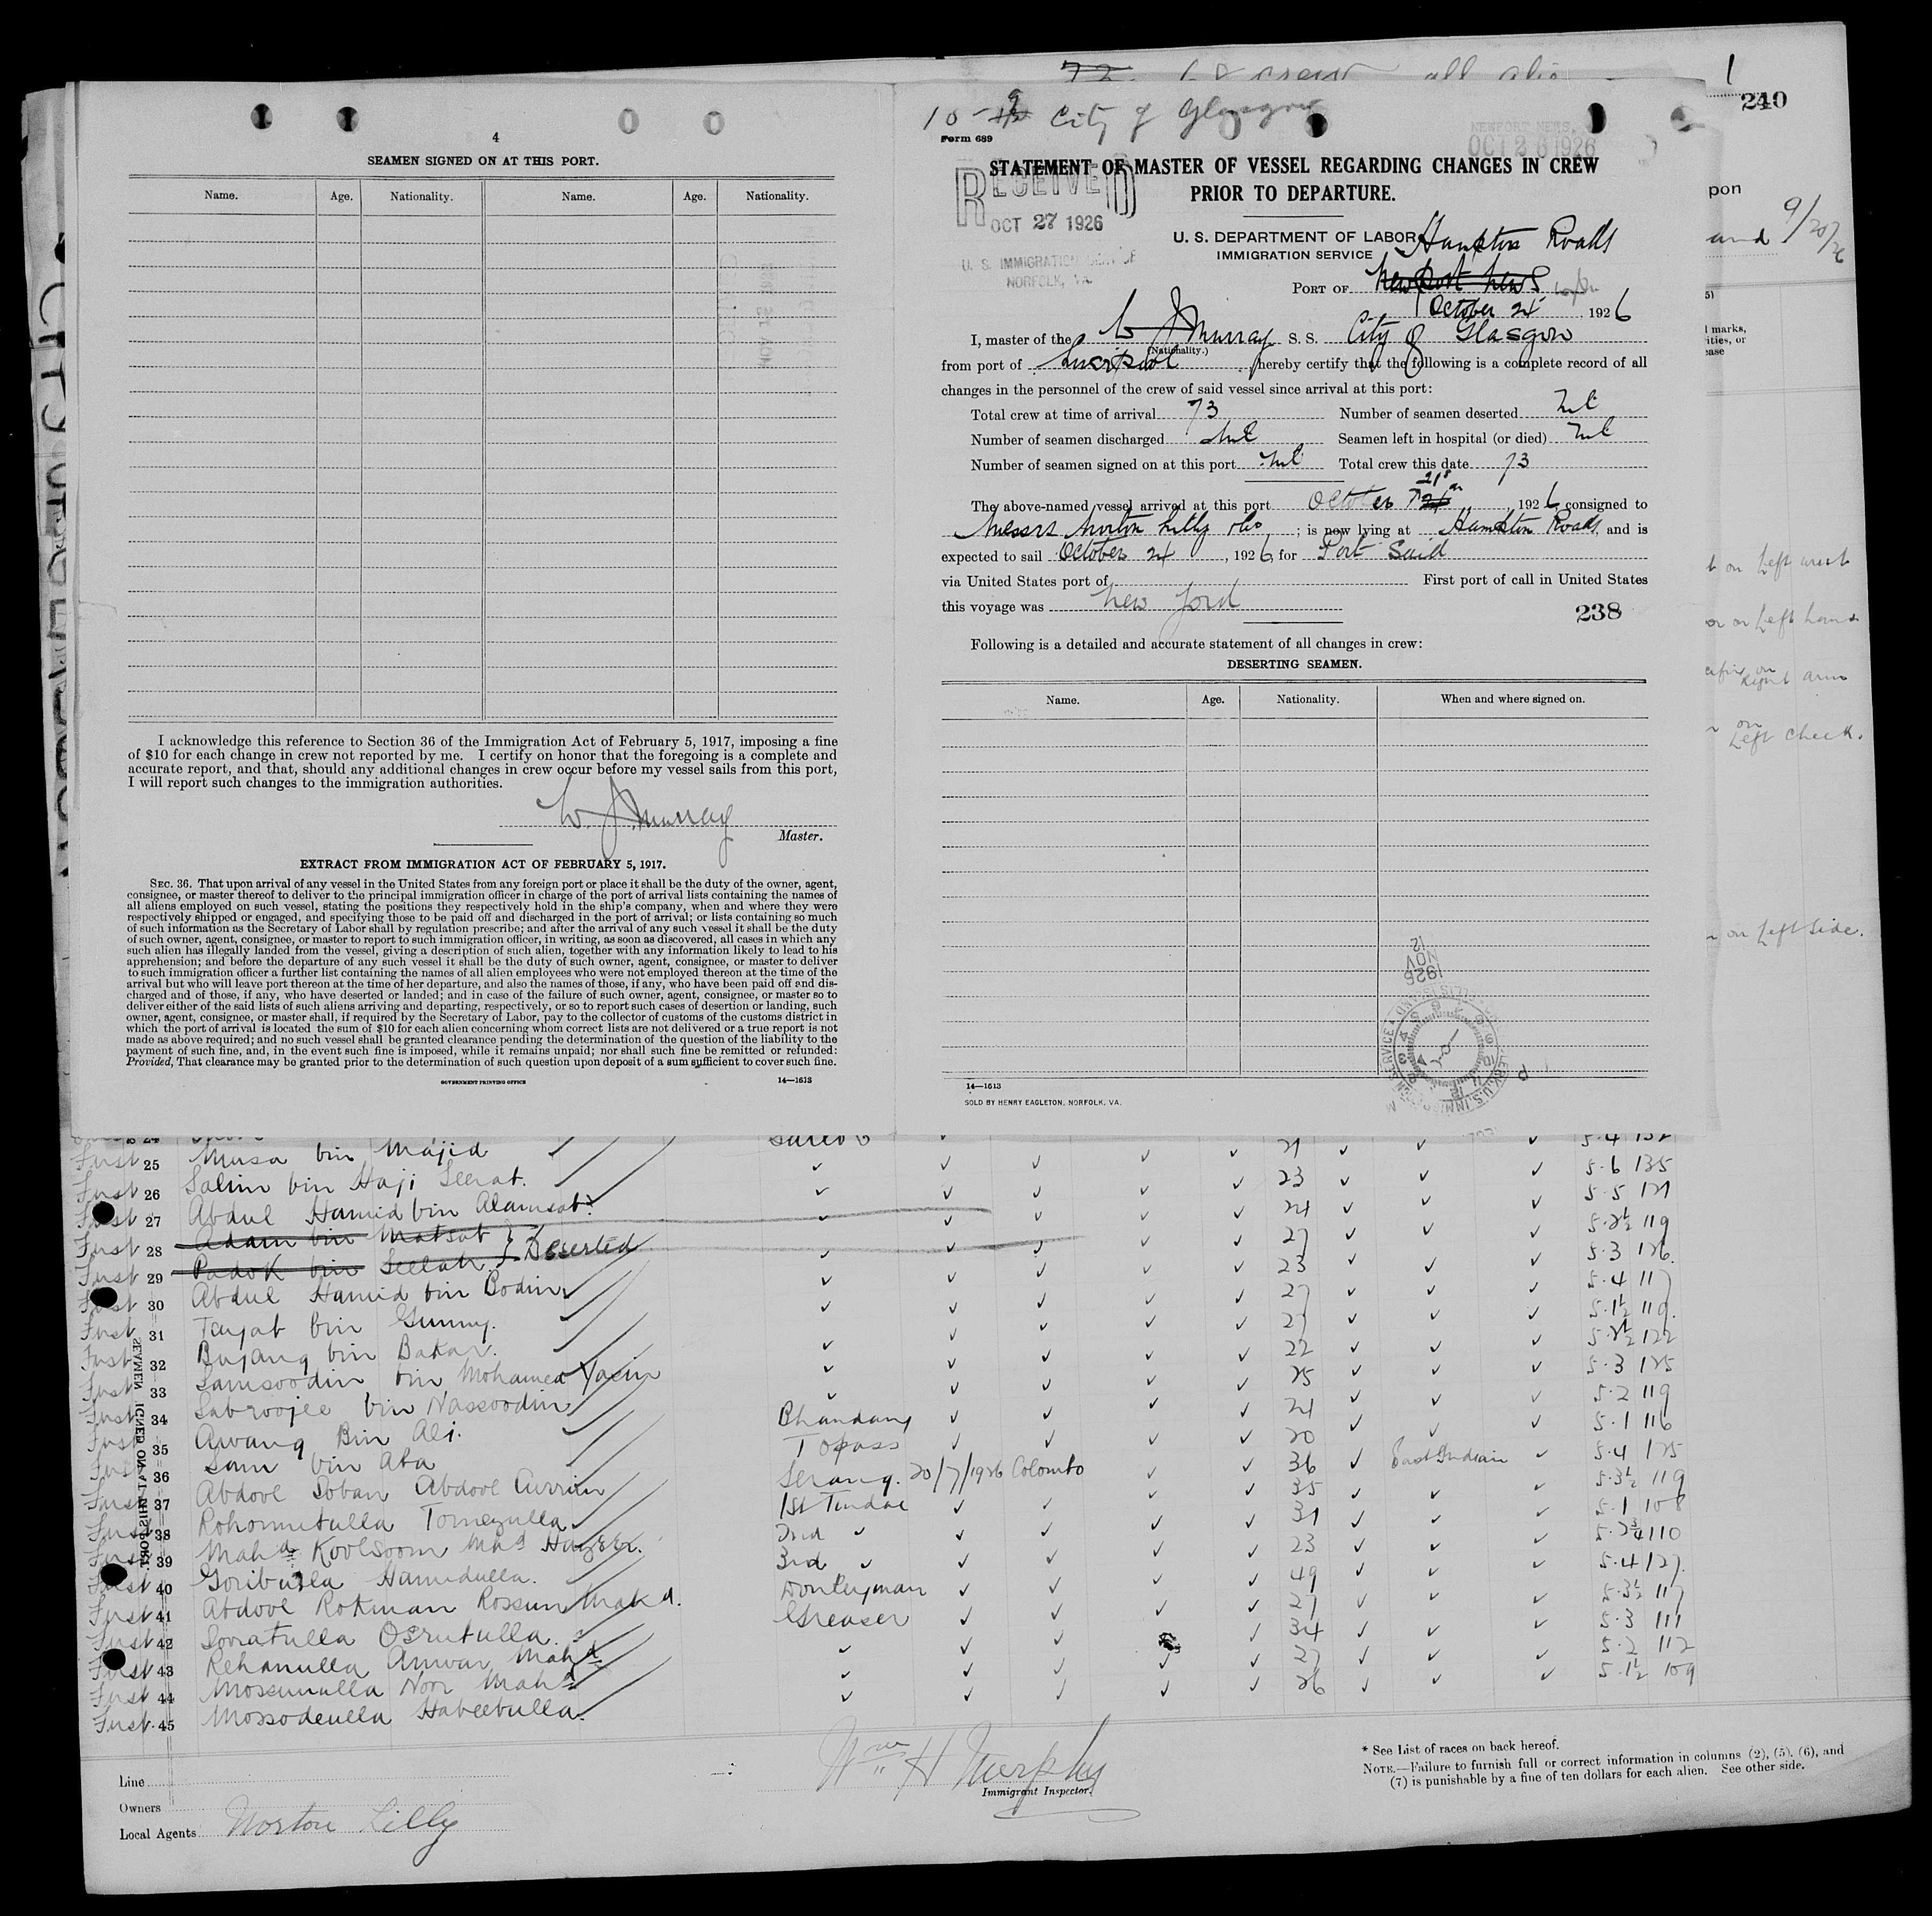 4
SEAMEN SIGNED ON AT THIS PORT.
Name. Age. Nationality. Name. Age. Nationality.
I acknowledge this reference to Section 36 of the Immigration Act of February 5, 1917, imposing a fine
of $10 for each change in crew not reported by me. I certify on honor that the foregoing is a complete and
accurate report, and that, should any additional changes in crew occur before my vessel sails from this port,
I will report such changes to the immigration authorities.
W. J Murray
Master.
EXTRACT FROM IMMIGRATION ACT OF FEBRUARY 5, 1917.
SEC. 36. That upon arrival of any vessel in the United States from any foreign port or place it shall be the duty of the owner, agent,
consignee, or master thereof to deliver to the principal immigration officer in charge of the port of arrival lists containing the names of
all aliens employed on such vessel, stating the positions they respectively hold in the ship's company, when and where they were
respectively shipped or engaged, and specifying those to be paid off and discharged in the port of arrival; or lists containing so much
of such information as the Secretary of Labor shall by regulation prescribe; and after the arrival of any such vessel it shall be the duty
of such owner, agent, consignee, or master to report to such immigration officer, in writing, as soon as discovered, all cases in which any
such alien has illegally landed from the vessel, giving a description of such alien, together with any information likely to lead to his
apprehension; and before the departure of any such vessel it shall be the duty of such owner, agent, consignee, or master to deliver
to such immigration officer a further list containing the names of all alien employees who were not employed thereon at the time of the
arrival but who will leave port thereon at the time of her departure, and also the names of those, if any, who have been paid off and dis-
charged and of those, if any, who have deserted or landed; and in case of the failure of such owner, agent, consignee, or master so to
deliver either of the said lists of such aliens arriving and departing, respectively, or so to report such cases of desertion or landing, such
owner, agent, consignee, or master shall, if required by the Secretary of Labor, pay to the collector of customs of the customs district in
which the port of arrival is located the sum of $10 for each alien concerning whom correct lists are not delivered or a true report is not
made as above required; and no such vessel shall be granted clearance pending the determination of the question of the liability to the
payment of such fine, and, in the event such fine is imposed, while it remains unpaid; nor shall such fine be remitted or refunded:
Provided, That clearance may be granted prior to the determination of such question upon deposit of a sum sufficient to cover such fine.
GOVERNMENT PRINTING OFFICE 14—1513
1
240
City of Glasgow
Form 689
NEWPORT NEWS,
OCT 26 1926
STATEMENT OF MASTER OF VESSEL REGARDING CHANGES IN CREW
PRIOR TO DEPARTURE.
RECEIVED
OCT 27 1926
U. S. IMMIGRATION SERVICE
NORFOLK, VA.
U. S. DEPARTMENT OF LABOR
IMMIGRATION SERVICE
Hampton Roads
PORT OF Newport News
October 24, 1926
I, master of the W J Murray S. S. City of Glasgow
(Nationality.)
from port of Liverpool, hereby certify that the following is a complete record of all
changes in the personnel of the crew of said vessel since arrival at this port:
Total crew at time of arrival 73 Number of seamen deserted Nil
Number of seamen discharged Nil Seamen left in hospital (or died) Nil
Number of seamen signed on at this port Nil Total crew this date 73
The above-named vessel arrived at this port October 21st, 1926, consigned to
Messrs Norton Lilly & Co; is now lying at Hampton Roads, and is
expected to sail October 24, 1926, for Port Said
via United States port of First port of call in United States
this voyage was New York
238
Following is a detailed and accurate statement of all changes in crew:
DESERTING SEAMEN.
Name. Age. Nationality. When and where signed on.
14—1513
SOLD BY HENRY EAGLETON, NORFOLK, VA.
1926
NOV
12
pon
and 9/20/26
marks,
on Left wrist
on Left hand
on Right arm
on Left cheek.
on Left side.
First 25 Musa bin Majid 21
First 26 Salim bin Haji Seerat. 23 5.6 135
First 27 Abdul Hamid bin Alamsat. 24 5.5 121
First 28 Adam bin Matsat 27 5.2½ 119
First 29 Padok bin Seelah. Deserted 23 5.3 126
First 30 Abdul Hamid bin Bodin 27 5.4 117
First 31 Tayat bin Gunny. 27 5.1½ 119
First 32 Bujang bin Bakar. 22 5.2½ 122
First 33 Samsoodin bin Mohamed Yasin 25 5.3 125
First 34 Sabroojee bin Nassoodin 24 5.2 119
First 35 Awang Bin Ali. Bhandary 20 5.1 116
First 36 Sam bin Ata Topass 36 East Indian 5.4 125
First 37 Abdool Soban Abdool Currim Serang. 20/7/1926 Colombo 35 5.3½ 119
First 38 Rohomutulla Tomezulla 1st Tindal 31 5.1 108
First 39 Mahd Koolsoom Mahd Hazeer. 2nd 23 5.2¾ 110
First 40 Goribulla Hamidulla. 3rd 49 5.4 127
First 41 Abdool Rohman Rossun Mahd. Donkeyman 27 5.3½ 117
First 42 Sovratulla Osrutulla. Greaser 34 5.3 111
First 43 Rehanulla Anwar Mahd 27 5.2 112
First 44 Mossunulla Noor Mahd 26 5.1½ 109
First 45 Mossodeulla Habeebulla.
SEAMEN SIGNED ON AT THIS PORT.
Line
Owners
Local Agents Norton Lilly
Wm H Murphy
Immigrant Inspector.
* See List of races on back hereof.
NOTE.—Failure to furnish full or correct information in columns (2), (5), (6), and
(7) is punishable by a fine of ten dollars for each alien. See other side.